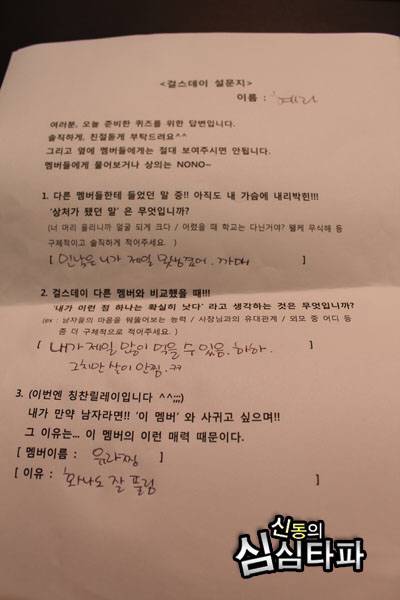 <걸스데이 설문지>
이름 : 혜리
여러분, 오늘 준비한 퀴즈를 위한 답변입니다.
솔직하게, 친절돋게 부탁드려요^^
그리고 옆에 멤버들에게는 절대 보여주시면 안됩니다.
멤버들에게 물어보거나 상의는 NONO~
1. 다른 멤버들한테 들었던 말 중!! 아직도 내 가슴에 내리박힌!!!
'상처가 됐던 말' 은 무엇입니까?
(너 머리 올리니까 얼굴 되게 크다 / 어렸을 때 학교는 다닌거야? 왤케 무식해 등
구체적이고 솔직하게 적어주세요. )
[ 민낯은 니가 제일 못생겼어. ]
2. 걸스데이 다른 멤버와 비교했을 때!!!
'내가 이런 점 하나는 확실히 낫다' 라고 생각하는 것은 무엇입니까?
(ex : 남자들의 마음을 꿰뚫어보는 능력 / 사장님과의 유대관계 / 외모 중 어디 등
좀 더 구체적으로 적어주세요. )
[ 내가 제일 많이 먹을 수 있음. 하하. ]
그치만 살이 안찜. ㅋㅋ
3. (이번엔 칭찬릴레이입니다 ^^;;;)
내가 만약 남자라면!! '이 멤버' 와 사귀고 싶으며!!
그 이유는... 이 멤버의 이런 매력 때문이다.
[ 멤버이름 : 유라찡 ]
[ 이유 : 화나도 잘 풀림 ]
신동의
심심타파